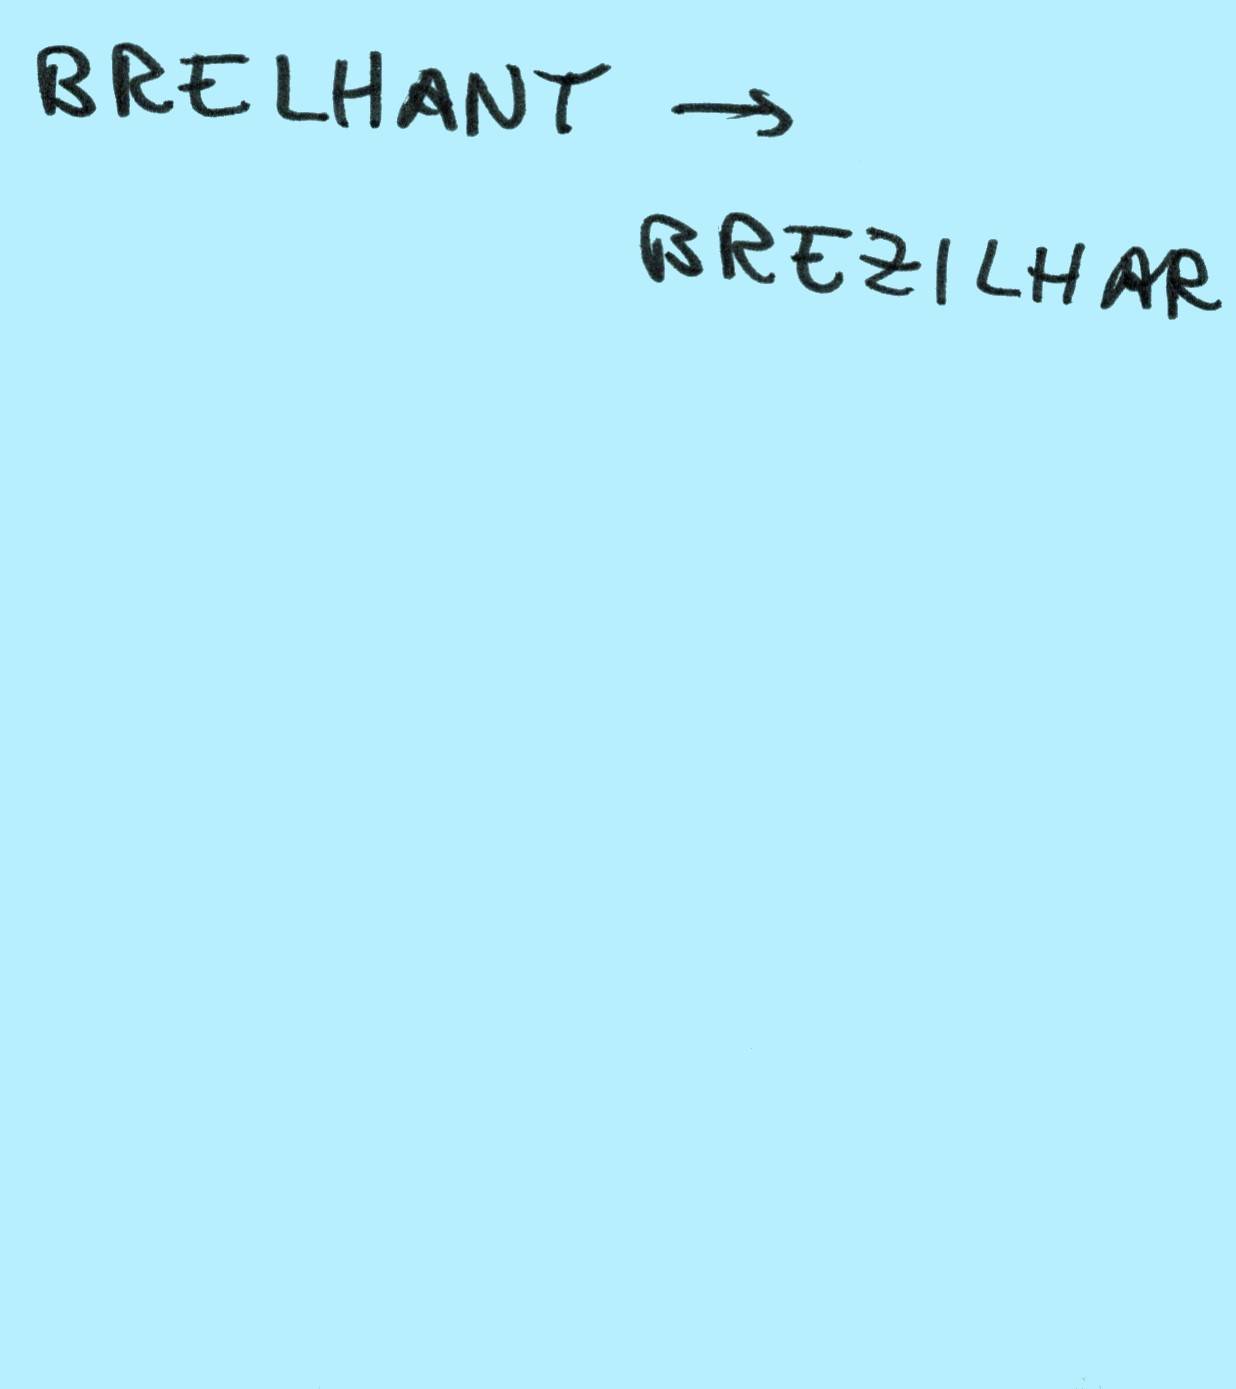 BRELHANT →
BREZILHAR